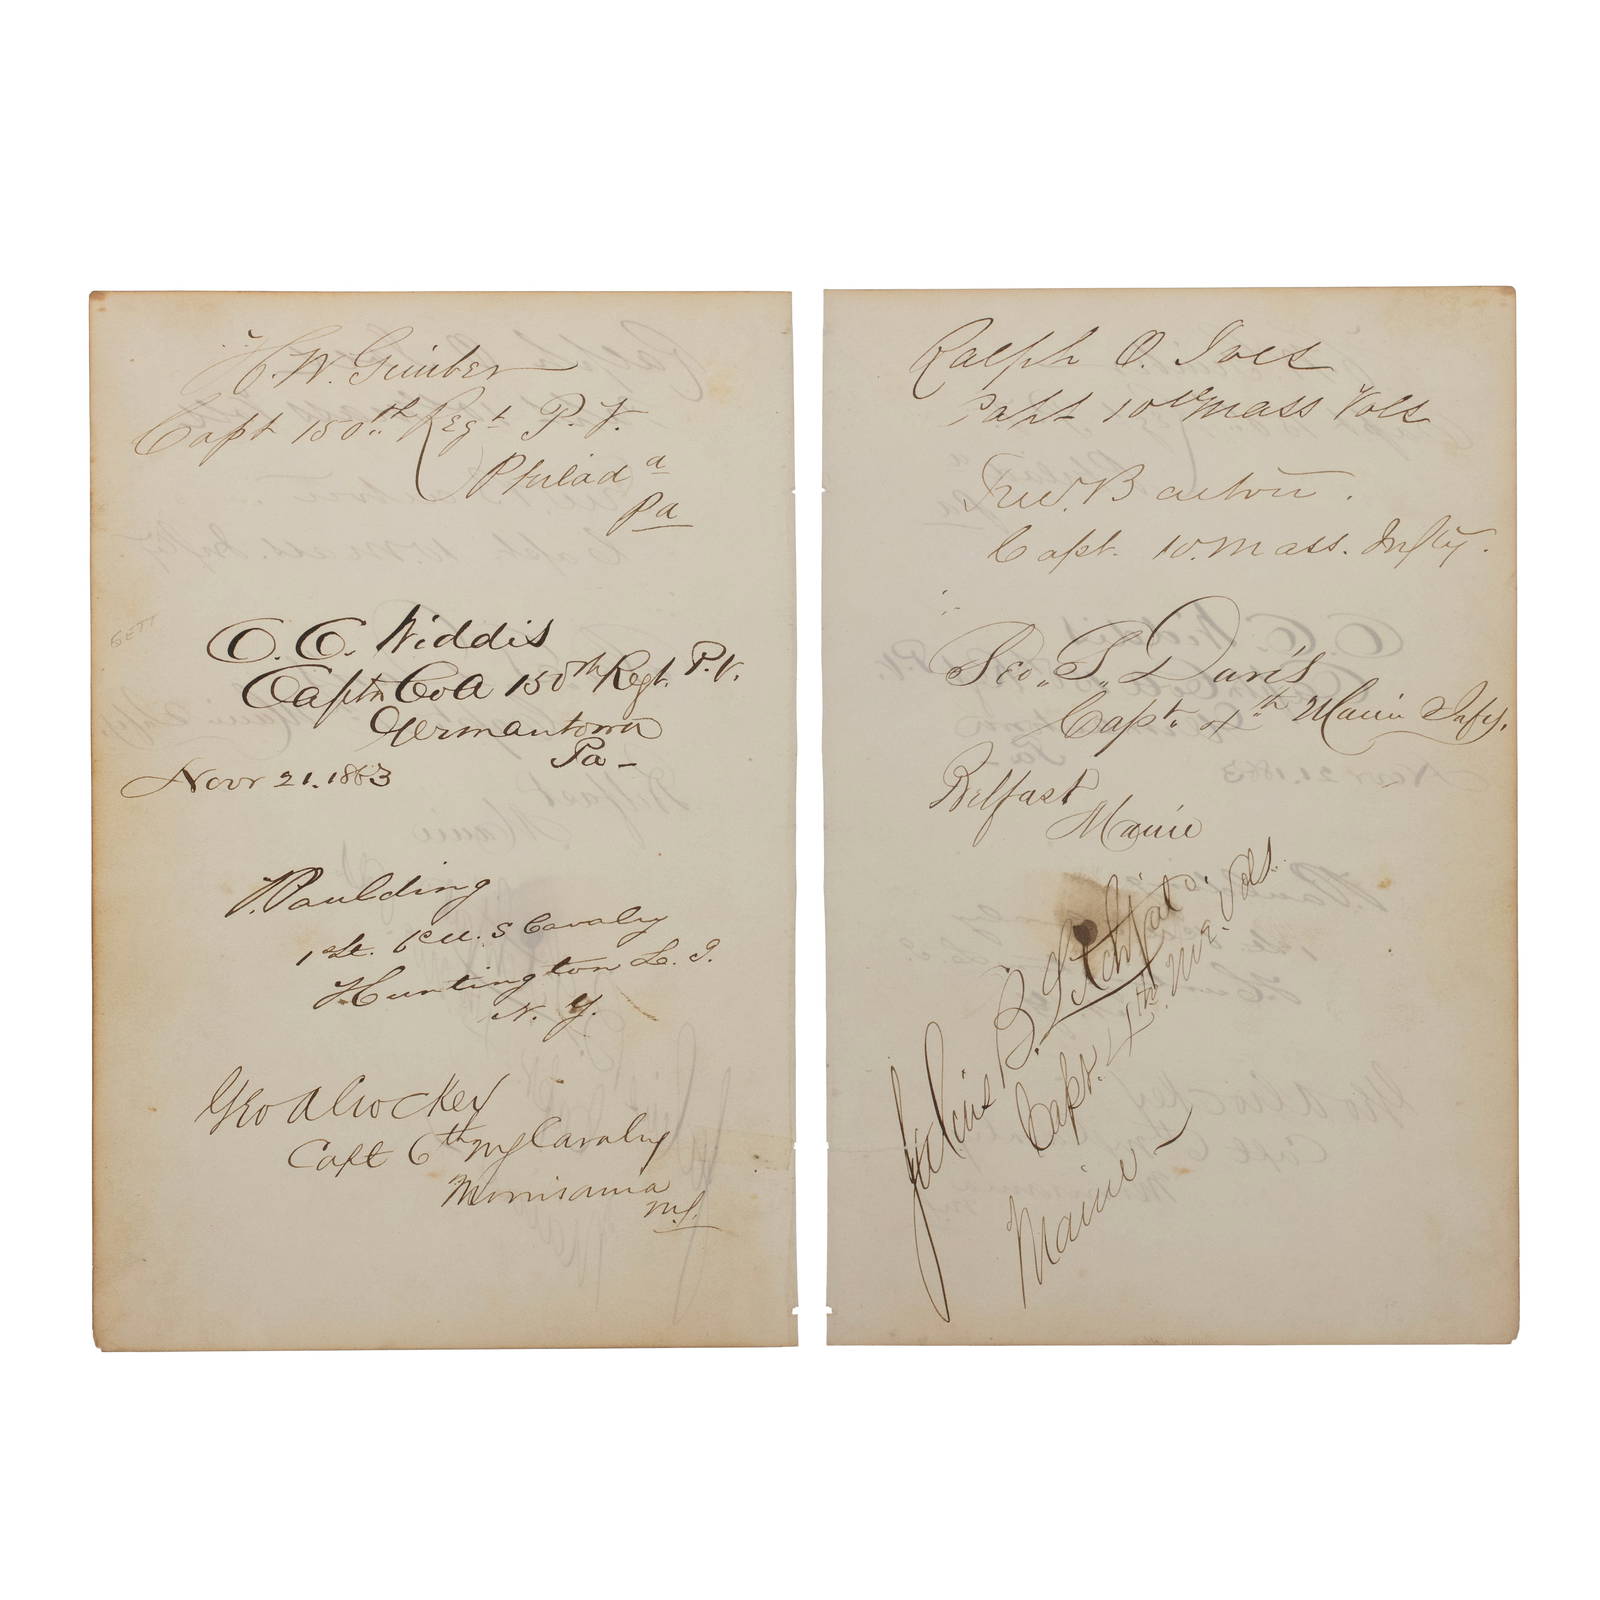 H. W. Gimber
Capt 150th Regt P. V.
Philada
Pa
GETT
C. C. Widdis
Captn Co A 150th Regt. P. V.
Germantown
Pa-
Novr 21. 1863
W. Paulding
1st Lt. 6th U. S Cavalry
Huntington L. I.
N. Y.
Geo A Crocker
Capt 6th NY Cavalry
Morrisania
N.Y.
Ralph O. Ives
Capt 10th Mass Vols
Fred. Barton.
Capt. 10. Mass. Infty.
Geo. G. Davis
Capt. 4th Maine Infy.
Belfast
Maine
Julius B. Litchfield.
Capt. 4th. Me. Vols.
Maine